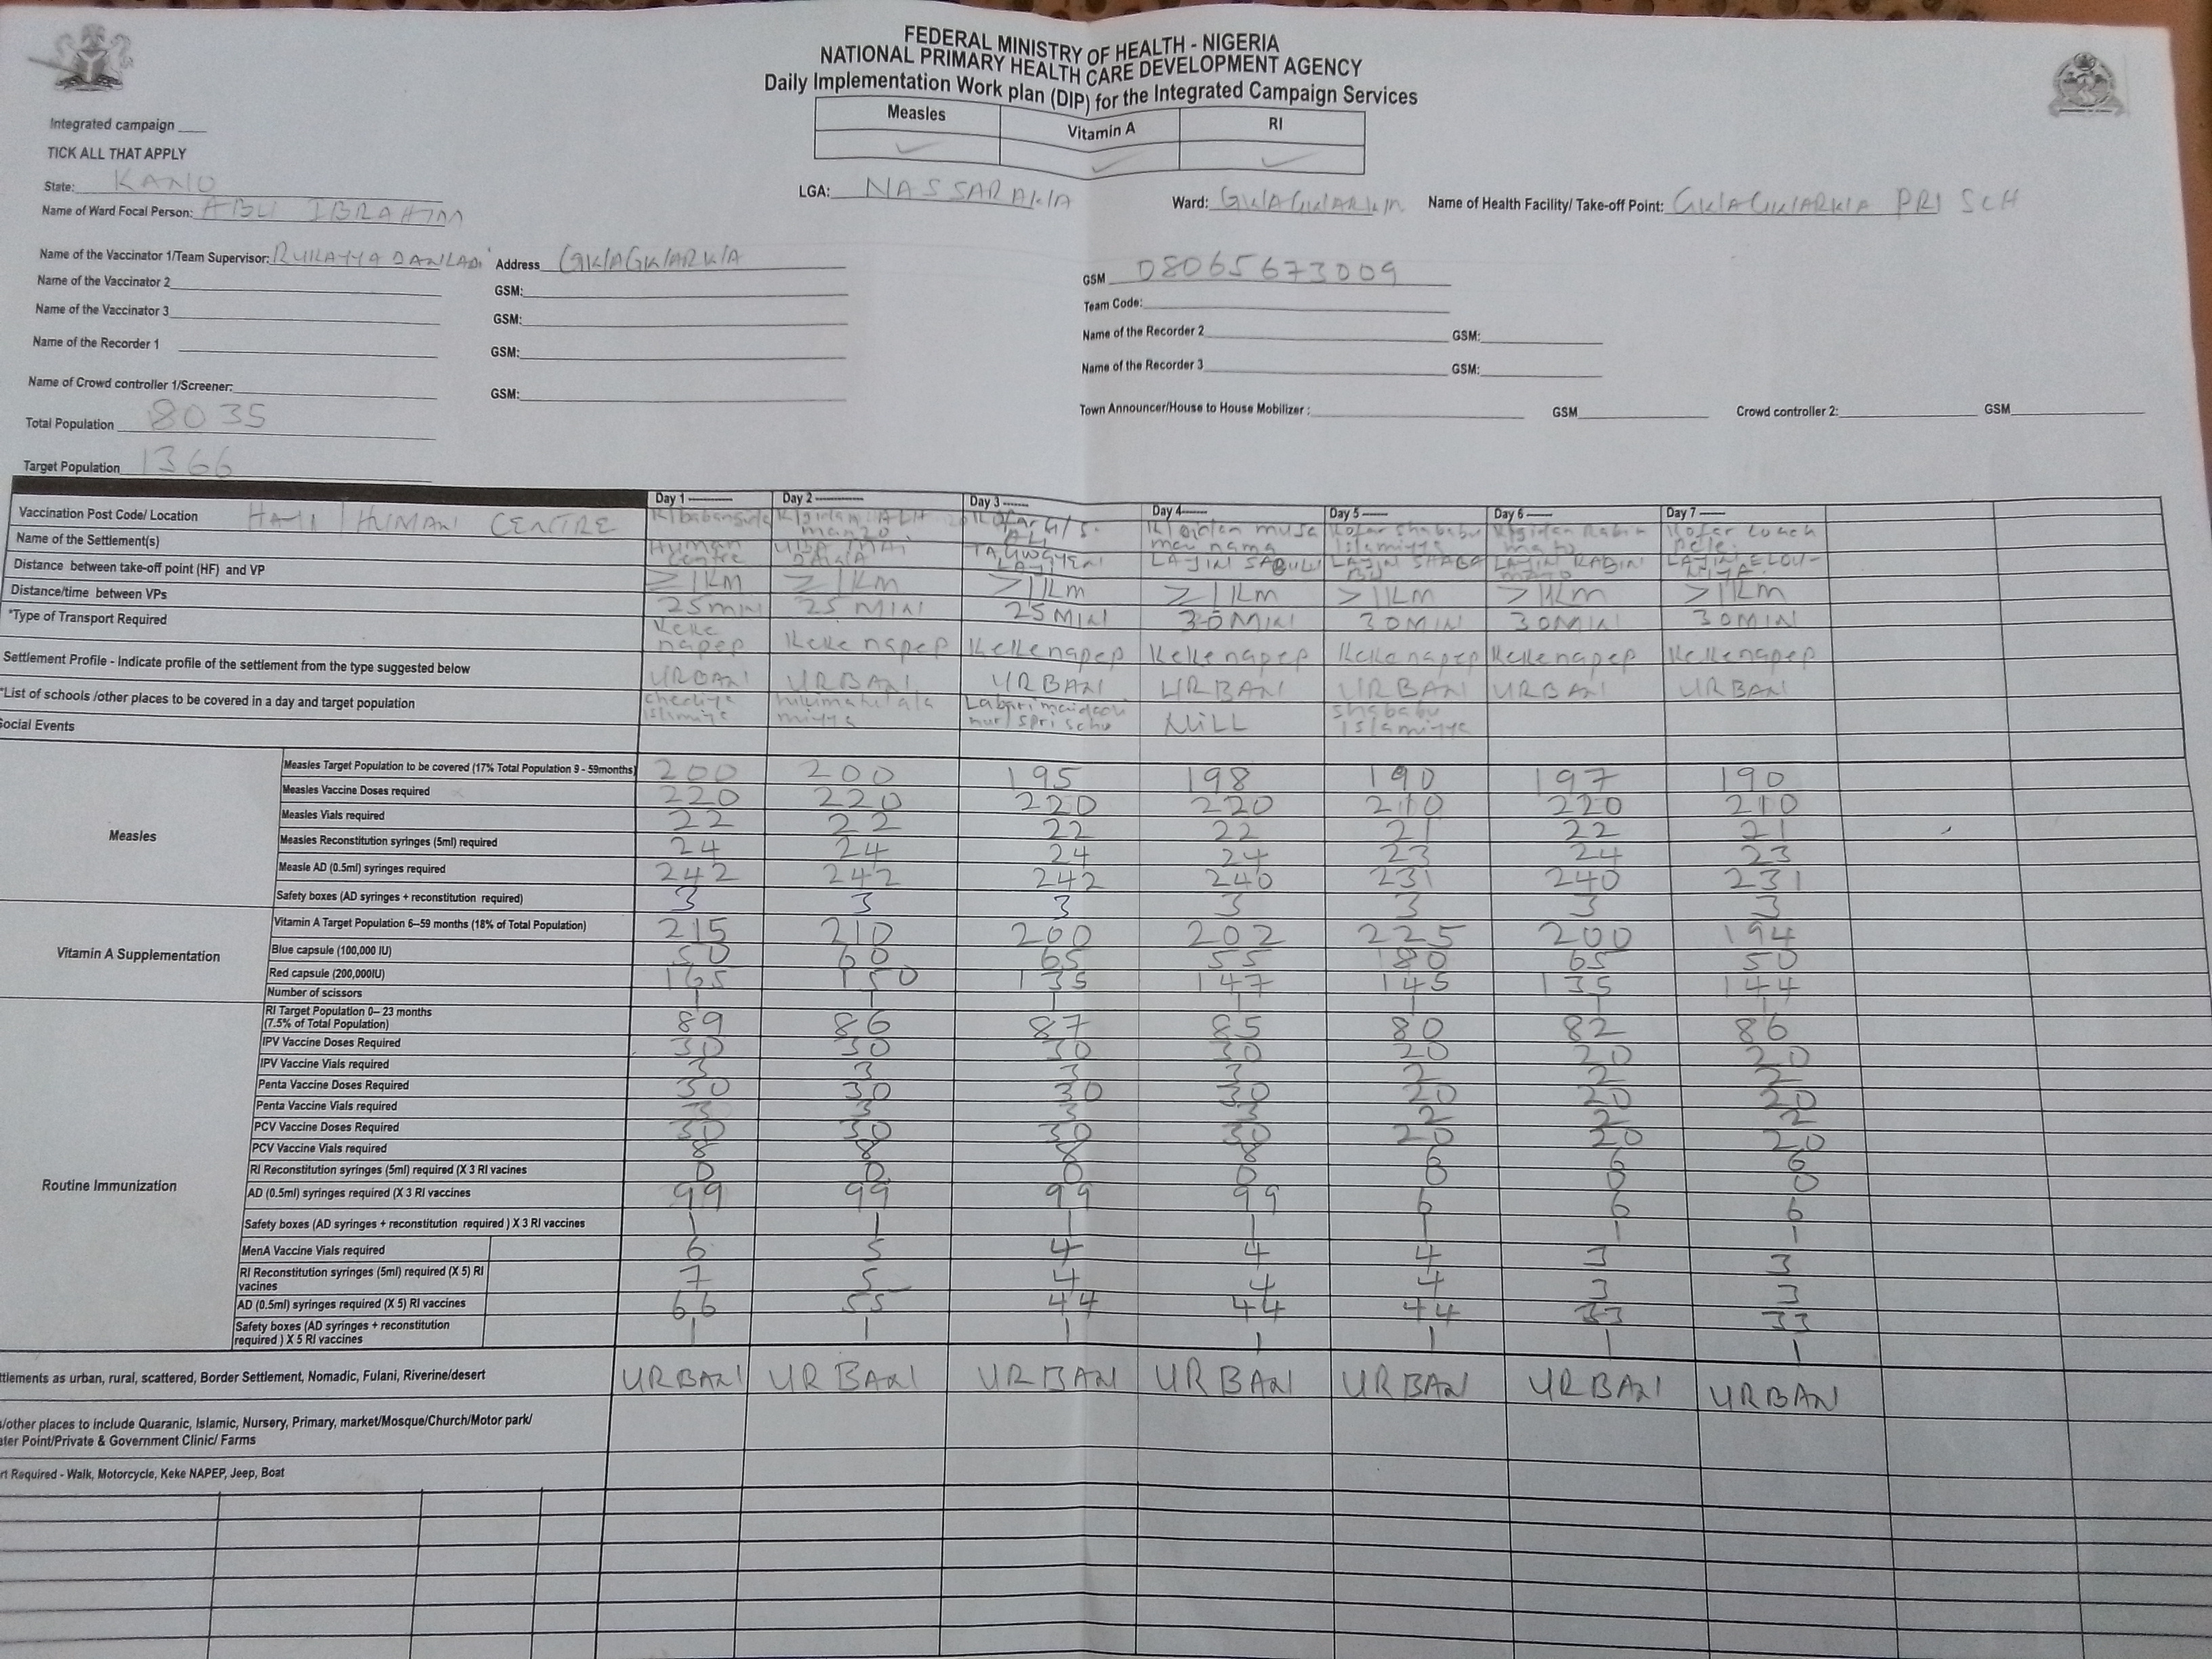 FEDERAL MINISTRY OF HEALTH - NIGERIA
NATIONAL PRIMARY HEALTH CARE DEVELOPMENT AGENCY
Daily Implementation Work plan (DIP) for the Integrated Campaign Services
Measles Vitamin A RI
Integrated campaign
TICK ALL THAT APPLY
State: KANO LGA: NASSARAWA Ward: GWAGWARWA Name of Health Facility/ Take-off Point: GWAGWARWA PRI SCH
Name of Ward Focal Person: ABU IBRAHIM
Name of the Vaccinator 1/Team Supervisor: RUKAYYA DANLADI Address GWAGWARWA GSM 08065673009
Name of the Vaccinator 2 GSM: Team Code:
Name of the Vaccinator 3 GSM: Name of the Recorder 2 GSM:
Name of the Recorder 1 GSM: Name of the Recorder 3 GSM:
Name of Crowd controller 1/Screener: GSM: Town Announcer/House to House Mobilizer : GSM Crowd controller 2: GSM
Total Population 8035
Target Population 1366
Day 1 Day 2 Day 3 Day 4 Day 5 Day 6 Day 7
Vaccination Post Code/ Location HUMAN CENTRE K/gidan musa mai nama Kofar shababu Islamiyya
Name of the Settlement(s) Human centre LAYIN SABULU LAYIN SHABABU LAYIN RABIN
Distance between take-off point (HF) and VP ≥1KM ≥1KM >1KM ≥1KM >1KM >1KM >1KM
Distance/time between VPs 25min 25 MIN 25 MIN 30 MIN 30MIN 30MIN 30MIN
*Type of Transport Required Keke napep Keke napep Kekenapep Kekenapep Kekenapep Kekenapep Kekenapep
Settlement Profile - Indicate profile of the settlement from the type suggested below URBAN URBAN URBAN URBAN URBAN URBAN URBAN
*List of schools /other places to be covered in a day and target population NILL shababu Islamiyya
Social Events
Measles
Measles Target Population to be covered (17% Total Population 9 - 59months) 200 200 195 198 190 197 190
Measles Vaccine Doses required 220 220 220 220 210 220 210
Measles Vials required 22 22 22 22 21 22 21
Measles Reconstitution syringes (5ml) required 24 24 24 24 23 24 23
Measle AD (0.5ml) syringes required 242 242 242 240 231 240 231
Safety boxes (AD syringes + reconstitution required) 3 3 3 3 3 3 3
Vitamin A Supplementation
Vitamin A Target Population 6--59 months (18% of Total Population) 215 210 200 202 225 200 194
Blue capsule (100,000 IU) 50 60 65 55 80 65 50
Red capsule (200,000IU) 165 150 135 147 145 135 144
Number of scissors 1 1 1 1 1 1 1
Routine Immunization
RI Target Population 0-- 23 months (7.5% of Total Population) 89 86 87 85 80 82 86
IPV Vaccine Doses Required 30 30 30 30 20 20 20
IPV Vaccine Vials required 3 3 3 3 2 2 2
Penta Vaccine Doses Required 30 30 30 30 20 20 20
Penta Vaccine Vials required 3 3 3 3 2 2 2
PCV Vaccine Doses Required 30 30 30 30 20 20 20
PCV Vaccine Vials required 8 8 8 8 6 6 6
RI Reconstitution syringes (5ml) required (X 3 RI vacines 0 0 0 0 0 0 0
AD (0.5ml) syringes required (X 3 RI vaccines 99 99 99 99 6 6 6
Safety boxes (AD syringes + reconstitution required ) X 3 RI vaccines 1 1 1 1 1 1 1
MenA Vaccine Vials required 6 5 4 4 4 3 3
RI Reconstitution syringes (5ml) required (X 5) RI vacines 7 5 4 4 4 3 3
AD (0.5ml) syringes required (X 5) RI vaccines 66 55 44 44 44 33 33
Safety boxes (AD syringes + reconstitution required ) X 5 RI vaccines 1 1 1 1 1 1 1
ttlements as urban, rural, scattered, Border Settlement, Nomadic, Fulani, Riverine/desert URBAN URBAN URBAN URBAN URBAN URBAN URBAN
s/other places to include Quaranic, Islamic, Nursery, Primary, market/Mosque/Church/Motor park/
ater Point/Private & Government Clinic/ Farms
rt Required - Walk, Motorcycle, Keke NAPEP, Jeep, Boat